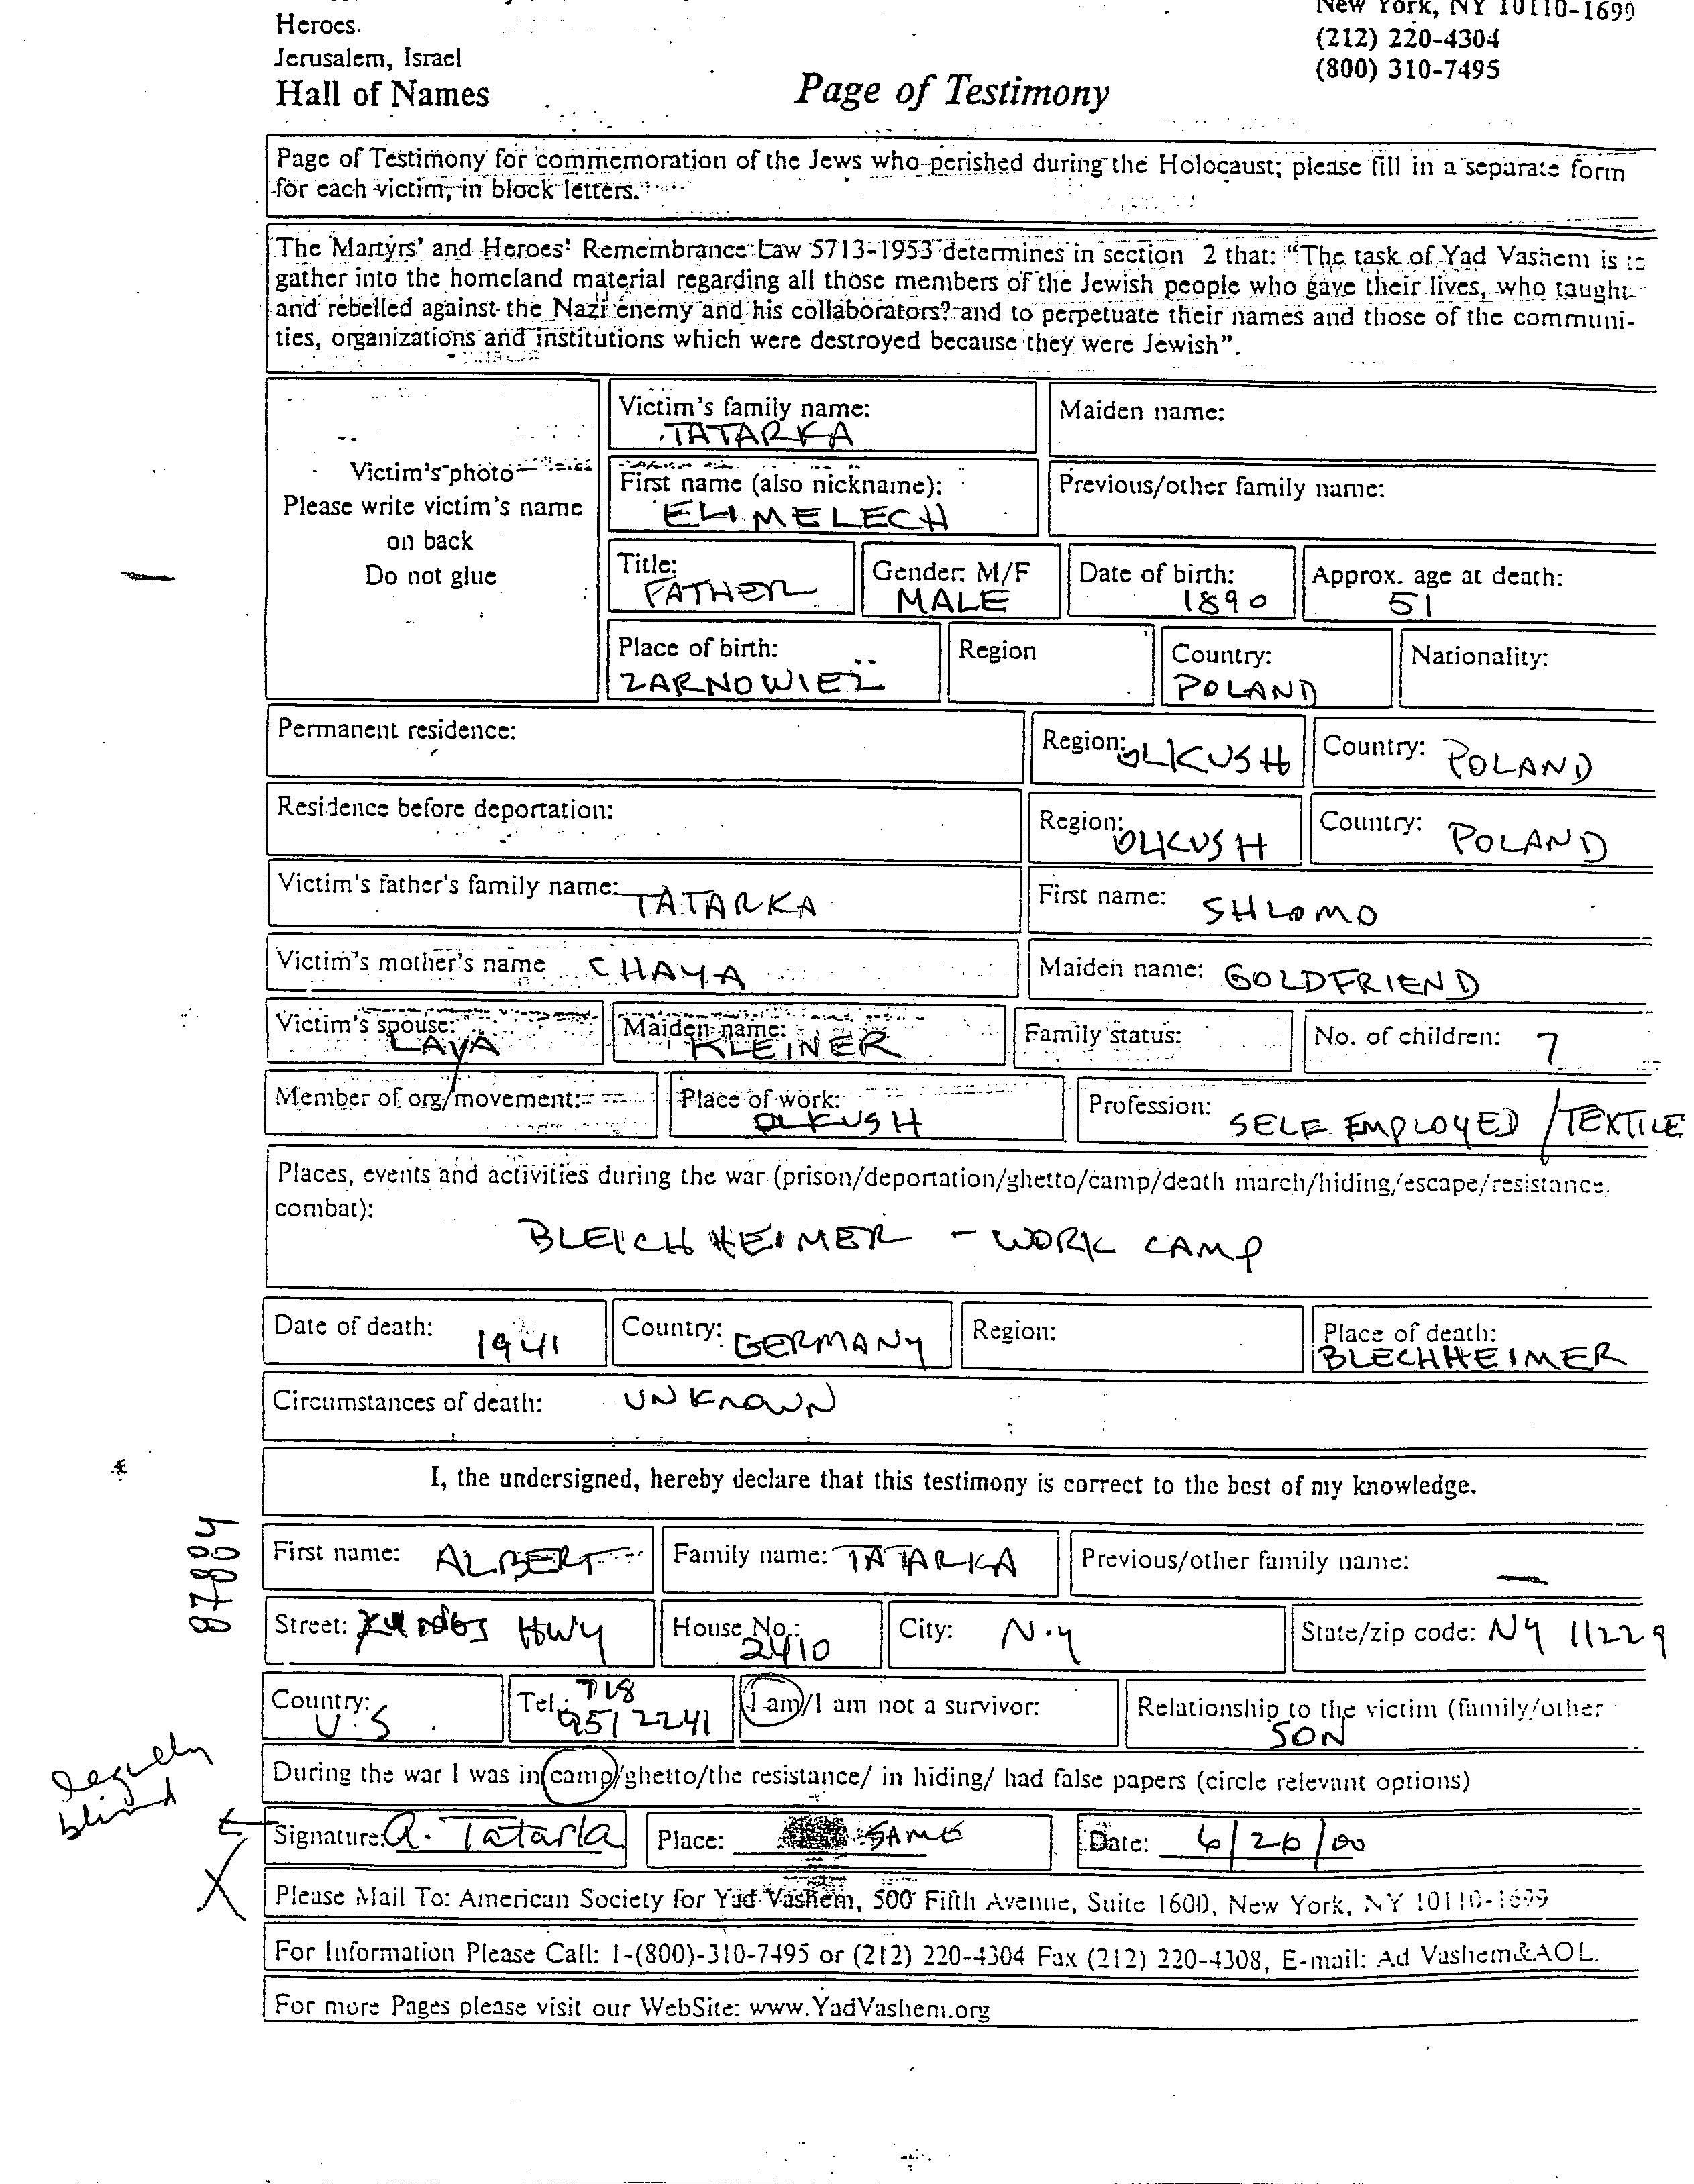 Heroes.
Jerusalem, Israel
Hall of Names
Page of Testimony
New York, NY 10110-1699
(212) 220-4304
(800) 310-7495
Page of Testimony for commemoration of the Jews who perished during the Holocaust; please fill in a separate form
for each victim, in block letters.
The Martyrs' and Heroes' Remembrance Law 5713-1953 determines in section 2 that: "The task of Yad Vashem is to
gather into the homeland material regarding all those members of the Jewish people who gave their lives, who taught
and rebelled against the Nazi enemy and his collaborators? and to perpetuate their names and those of the communi-
ties, organizations and institutions which were destroyed because they were Jewish".
Victim's photo
Please write victim's name
on back
Do not glue
Victim's family name:
TATARKA
Maiden name:
First name (also nickname):
ELIMELECH
Previous/other family name:
Title:
FATHER
Gender: M/F
MALE
Date of birth:
1890
Approx. age at death:
51
Place of birth:
ZARNOWIEZ
Region
Country:
POLAND
Nationality:
Permanent residence:
Region: OLKUSH
Country: POLAND
Residence before deportation:
Region: OLKUSH
Country: POLAND
Victim's father's family name: TATARKA
First name: SHLOMO
Victim's mother's name CHAYA
Maiden name: GOLDFRIEND
Victim's spouse:
LAYA
Maiden name:
KLEINER
Family status:
No. of children: 7
Member of org/movement:
Place of work:
OLKUSH
Profession: SELF EMPLOYED / TEXTILE
Places, events and activities during the war (prison/deportation/ghetto/camp/death march/hiding/escape/resistance
combat):
BLEICHHEIMER - WORK CAMP
Date of death: 1941
Country: GERMANY
Region:
Place of death:
BLECHHEIMER
Circumstances of death: UNKNOWN
I, the undersigned, hereby declare that this testimony is correct to the best of my knowledge.
87804
First name: ALBERT
Family name: TATARKA
Previous/other family name: —
Street: KINGS HWY
House No.:
2410
City: N.Y
State/zip code: NY 11229
Country:
U.S.
Tel.: 718
951 2241
I am/I am not a survivor:
Relationship to the victim (family/other
SON
During the war I was in camp/ghetto/the resistance/ in hiding/ had false papers (circle relevant options)
legally
blind
Signature: A. Tatarka
Place: SAME
Date: 6/26/00
X
Please Mail To: American Society for Yad Vashem, 500 Fifth Avenue, Suite 1600, New York, NY 10110-1699
For Information Please Call: 1-(800)-310-7495 or (212) 220-4304 Fax (212) 220-4308, E-mail: Ad Vashem&AOL.
For more Pages please visit our WebSite: www.YadVashem.org